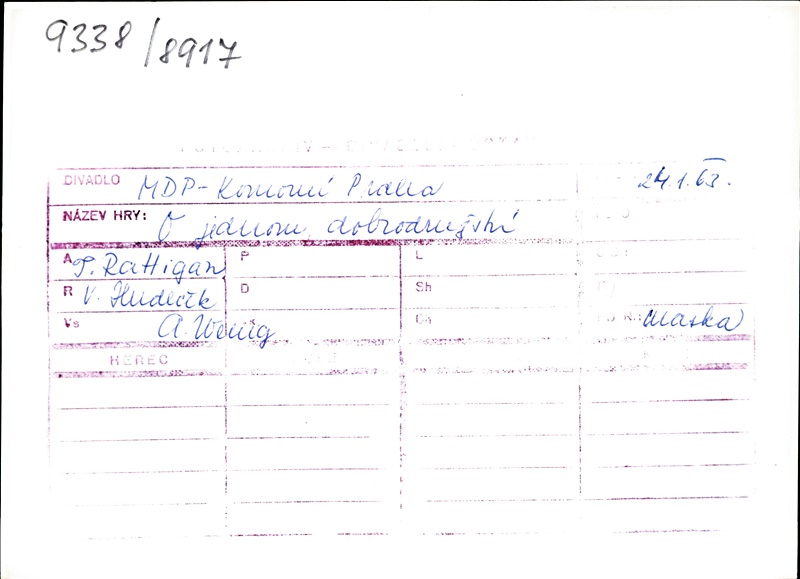 9338/8917
DIVADLO MDP-Komorní Praha 24.1.63.
NÁZEV HRY: O jednom dobrodružství
A T. Rattigan P L
R V. Hudeček D Sh
Vs A. Wenig Maska
HEREC